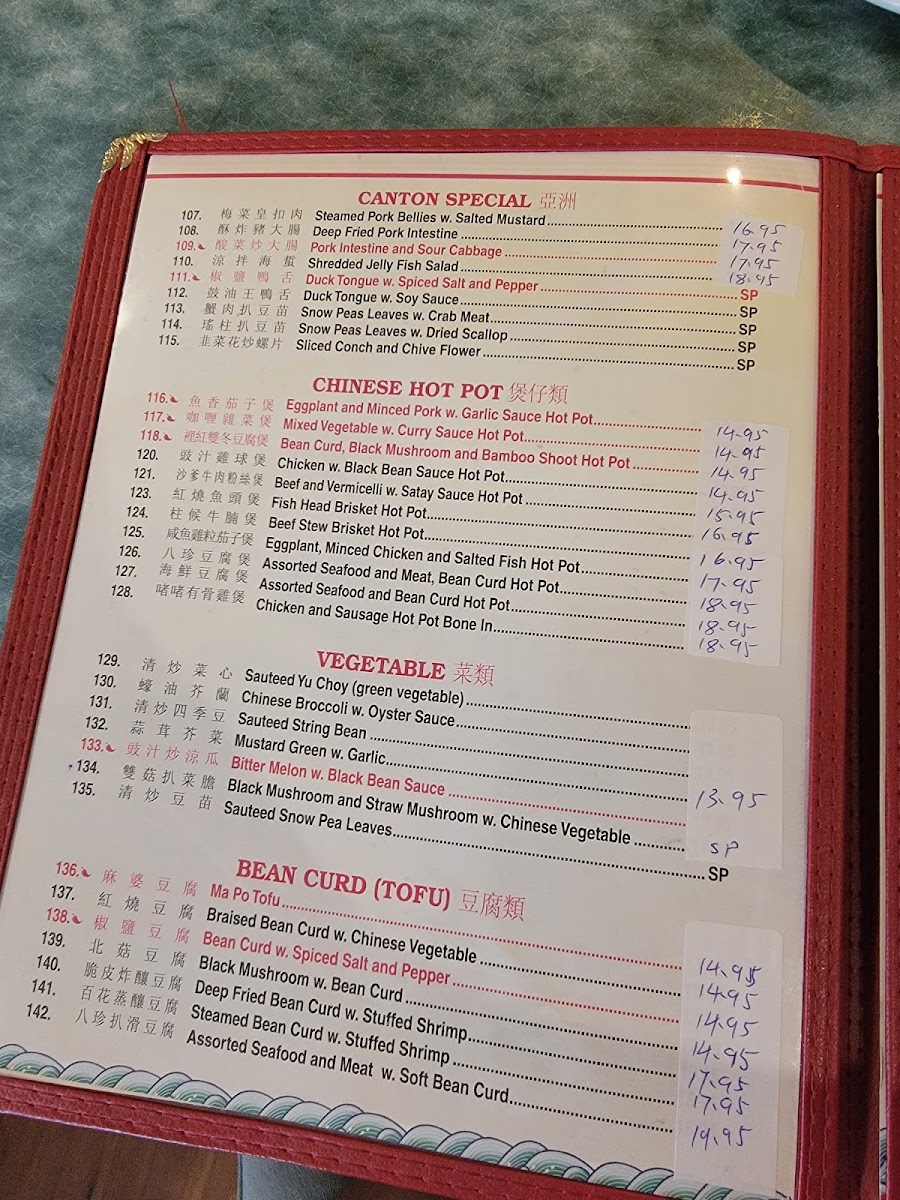 CANTON SPECIAL 亞洲
107. 梅菜皇扣肉 Steamed Pork Bellies w. Salted Mustard 16.95
108. 酥炸豬大腸 Deep Fried Pork Intestine 17.95
109. 酸菜炒大腸 Pork Intestine and Sour Cabbage 17.95
110. 涼拌海蜇 Shredded Jelly Fish Salad 18.95
111. 椒鹽鴨舌 Duck Tongue w. Spiced Salt and Pepper SP
112. 鼓油王鴨舌 Duck Tongue w. Soy Sauce SP
113. 蟹肉扒豆苗 Snow Peas Leaves w. Crab Meat SP
114. 瑤柱扒豆苗 Snow Peas Leaves w. Dried Scallop SP
115. 韭菜花炒螺片 Sliced Conch and Chive Flower SP
CHINESE HOT POT 煲仔類
116. 魚香茄子煲 Eggplant and Minced Pork w. Garlic Sauce Hot Pot 14.95
117. 咖喱雜菜煲 Mixed Vegetable w. Curry Sauce Hot Pot 14.95
118. 裡紅雙冬豆腐煲 Bean Curd, Black Mushroom and Bamboo Shoot Hot Pot 14.95
120. 豉汁雞球煲 Chicken w. Black Bean Sauce Hot Pot 14.95
121. 沙爹牛肉粉絲煲 Beef and Vermicelli w. Satay Sauce Hot Pot 15.95
123. 紅燒魚頭煲 Fish Head Brisket Hot Pot 16.95
124. 柱候牛腩煲 Beef Stew Brisket Hot Pot 16.95
125. 咸魚雞粒茄子煲 Eggplant, Minced Chicken and Salted Fish Hot Pot 17.95
126. 八珍豆腐煲 Assorted Seafood and Meat, Bean Curd Hot Pot 18.95
127. 海鮮豆腐煲 Assorted Seafood and Bean Curd Hot Pot 18.95
128. 啫啫有骨雞煲 Chicken and Sausage Hot Pot Bone In 18.95
VEGETABLE 菜類
129. 清炒菜心 Sauteed Yu Choy (green vegetable)
130. 蠔油芥蘭 Chinese Broccoli w. Oyster Sauce
131. 清炒四季豆 Sauteed String Bean
132. 蒜茸芥菜 Mustard Green w. Garlic 13.95
133. 豉汁炒涼瓜 Bitter Melon w. Black Bean Sauce
134. 雙菇扒菜膽 Black Mushroom and Straw Mushroom w. Chinese Vegetable SP
135. 清炒豆苗 Sauteed Snow Pea Leaves SP
BEAN CURD (TOFU) 豆腐類
136. 麻婆豆腐 Ma Po Tofu 14.95
137. 紅燒豆腐 Braised Bean Curd w. Chinese Vegetable 14.95
138. 椒鹽豆腐 Bean Curd w. Spiced Salt and Pepper 14.95
139. 北菇豆腐 Black Mushroom w. Bean Curd 14.95
140. 脆皮炸釀豆腐 Deep Fried Bean Curd w. Stuffed Shrimp 17.95
141. 百花蒸釀豆腐 Steamed Bean Curd w. Stuffed Shrimp 17.95
142. 八珍扒滑豆腐 Assorted Seafood and Meat w. Soft Bean Curd 19.95